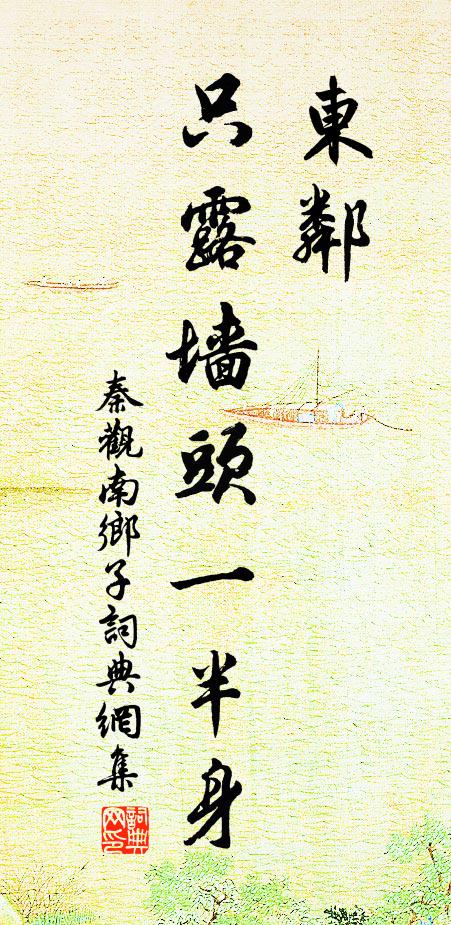 東鄰
只露墙頭一半身
秦觀南鄉子詞典網集
詞典网印